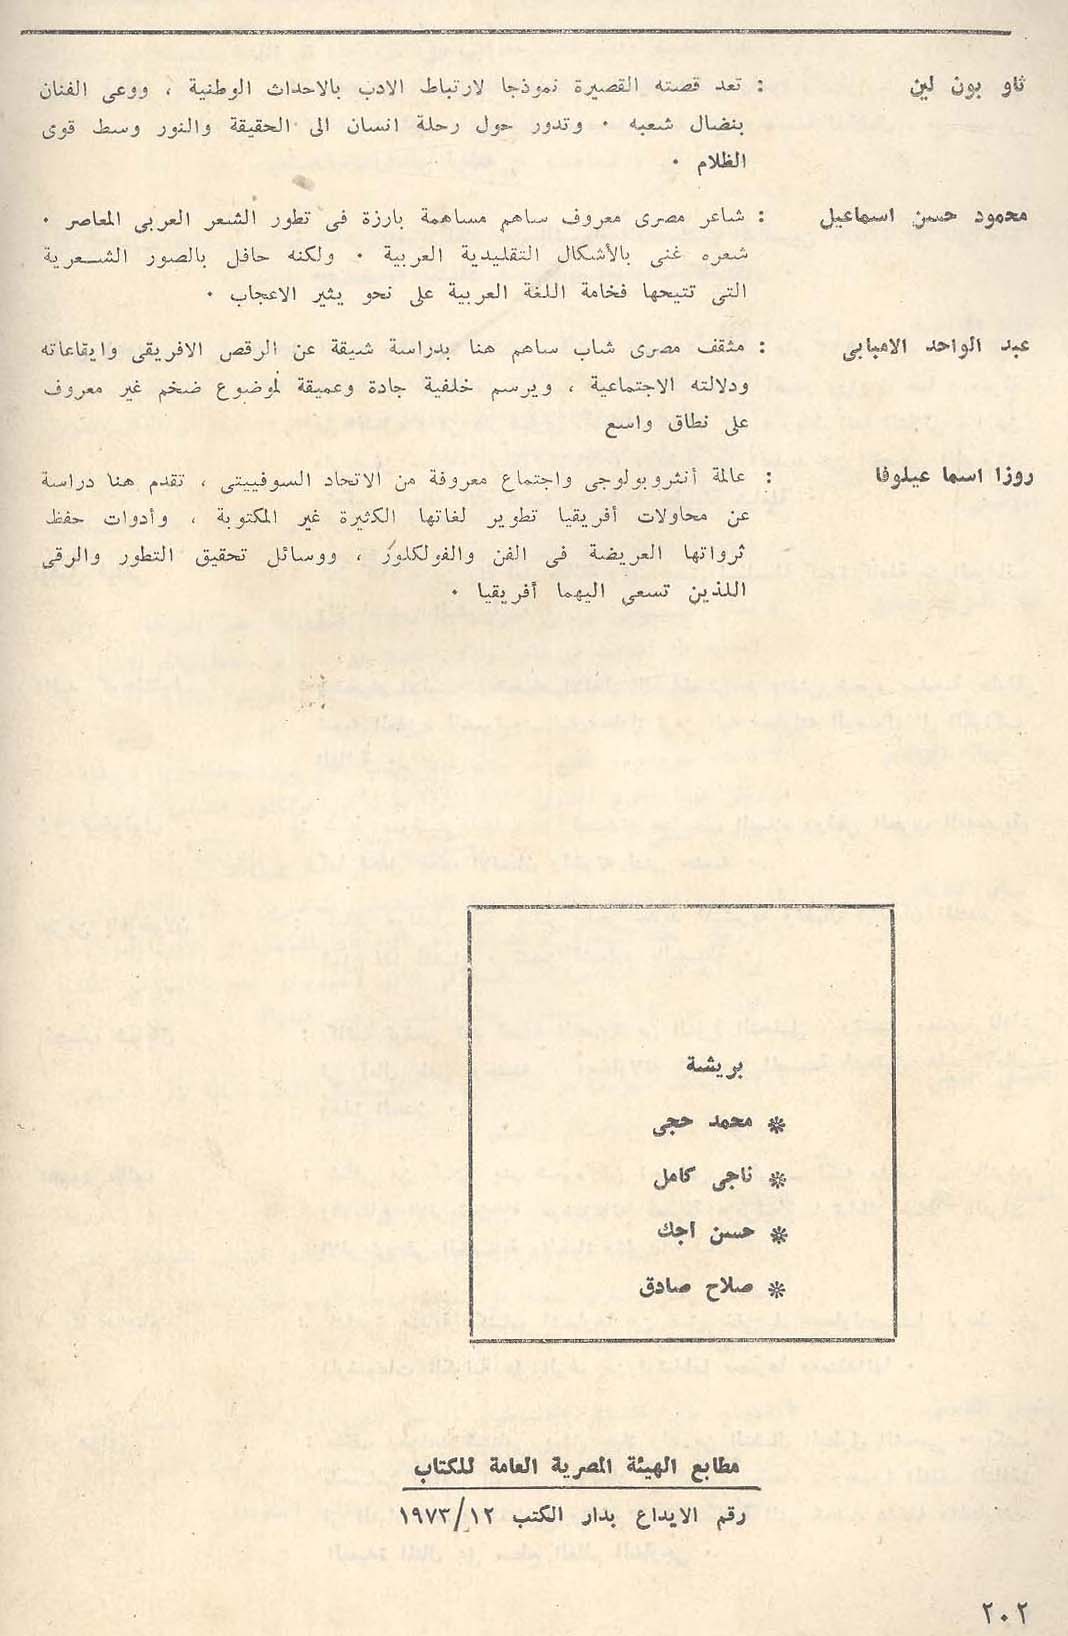 ثاو بون لين : تعد قصته القصيرة نموذجا لارتباط الادب بالاحداث الوطنية ، ووعى الفنان
بنضال شعبه . وتدور حول رحلة انسان الى الحقيقة والنور وسط قوى
الظلام .
محمود حسن اسماعيل : شاعر مصرى معروف ساهم مساهمة بارزة فى تطور الشعر العربى المعاصر .
شعره غنى بالأشكال التقليدية العربية . ولكنه حافل بالصور الشـعرية
التى تتيحها فخامة اللغة العربية على نحو يثير الاعجاب .
عبد الواحد الامبابى : مثقف مصرى شاب ساهم هنا بدراسة شيقة عن الرقص الافريقى وايقاعاته
ودلالته الاجتماعية ، ويرسم خلفية جادة وعميقة لموضوع ضخم غير معروف
على نطاق واسع
روزا اسما عيلوفا : عالمة أنثروبولوجى واجتماع معروفة من الاتحاد السوفييتى ، تقدم هنا دراسة
عن محاولات أفريقيا تطوير لغاتها الكثيرة غير المكتوبة ، وأدوات حفظ
ثرواتها العريضة فى الفن والفولكلور ، ووسائل تحقيق التطور والرقى
اللذين تسعى اليهما أفريقيا .
بريشة
* محمد حجى
* ناجى كامل
* حسن اجك
* صلاح صادق
مطابع الهيئة المصرية العامة للكتاب
رقم الايداع بدار الكتب ١٩٧٣/١٢
٢٠٢